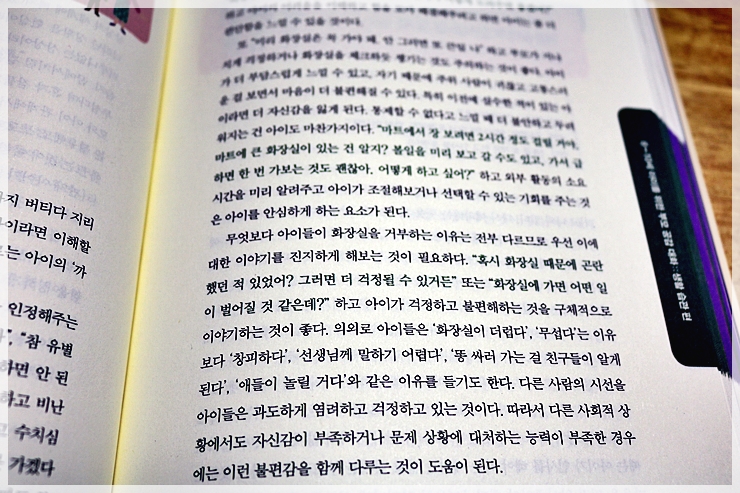 편안함을 느낄 수 있을 것이다.
또 "미리 화장실은 꼭 가야 돼. 안 그러면 또 난리 나" 하고 부모가 지나
치게 걱정하거나 화장실을 체크하듯 챙기는 것도 주의하는 것이 좋다. 아이
가 더 부담스럽게 느낄 수 있고, 자기 때문에 주위 사람이 귀찮고 고통스러
운 걸 보면서 마음이 더 불편해질 수 있다. 특히 이전에 실수한 적이 있는 아
이라면 더 자신감을 잃게 된다. 통제할 수 없다고 느낄 때 더 불안하고 두려
워지는 건 아이도 마찬가지이다. "마트에서 장 보려면 2시간 정도 걸릴 거야.
마트에 큰 화장실이 있는 건 알지? 볼일을 미리 보고 갈 수도 있고, 가서 급
하면 한 번 가보는 것도 괜찮아. 어떻게 하고 싶어?" 하고 외부 활동의 소요
시간을 미리 알려주고 아이가 조절해보거나 선택할 수 있는 기회를 주는 것
은 아이를 안심하게 하는 요소가 된다.
무엇보다 아이들이 화장실을 거부하는 이유는 전부 다르므로 우선 이에
대한 이야기를 진지하게 해보는 것이 필요하다. "혹시 화장실 때문에 곤란
했던 적 있었어? 그러면 더 걱정될 수 있거든" 또는 "화장실에 가면 어떤 일
이 벌어질 것 같은데?" 하고 아이가 걱정하고 불편해하는 것을 구체적으로
이야기하는 것이 좋다. 의외로 아이들은 '화장실이 더럽다', '무섭다'는 이유
보다 '창피하다', '선생님께 말하기 어렵다', '똥 싸러 가는 걸 친구들이 알게
된다', '애들이 놀릴 거다'와 같은 이유를 들기도 한다. 다른 사람의 시선을
아이들은 과도하게 염려하고 걱정하고 있는 것이다. 따라서 다른 사회적 상
황에서도 자신감이 부족하거나 문제 상황에 대처하는 능력이 부족한 경우
에는 이런 불편감을 함께 다루는 것이 도움이 된다.
지 버티다 지리
이라면 이해할
는 아이의 '까
인정해주는
", "참 유별
하면 안 된
하고 비난
수치심
가겠다
부모 공감 대화 : 생활 습관 편